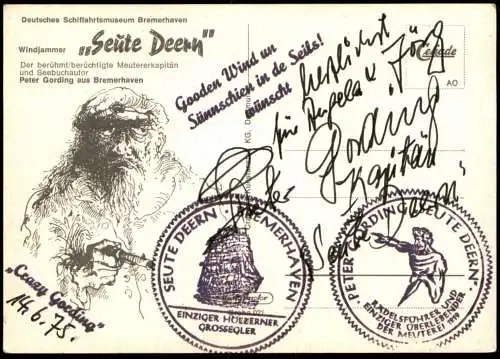 Deutsches Schiffahrtsmuseum Bremerhaven
Windjammer „Seute Deern"
Der berühmt/berüchtigte Meutererkapitän
und Seebuchautor
Peter Gording aus Bremerhaven
Gooden Wind un
Sünnschien in de Seils!
wünscht
herzlichst
für Angela u Jörg
Peter Gording
Kapitän
Seute Deern
AO
SEUTE DEERN · BREMERHAVEN
EINZIGER HÖLZERNER
GROSSEGLER
PETER GORDING „SEUTE DEERN"
RÄDELSFÜHRER UND
EINZIGER ÜBERLEBENDER
DER MEUTEREI 1919
„Conny Gording"
14.6.75.